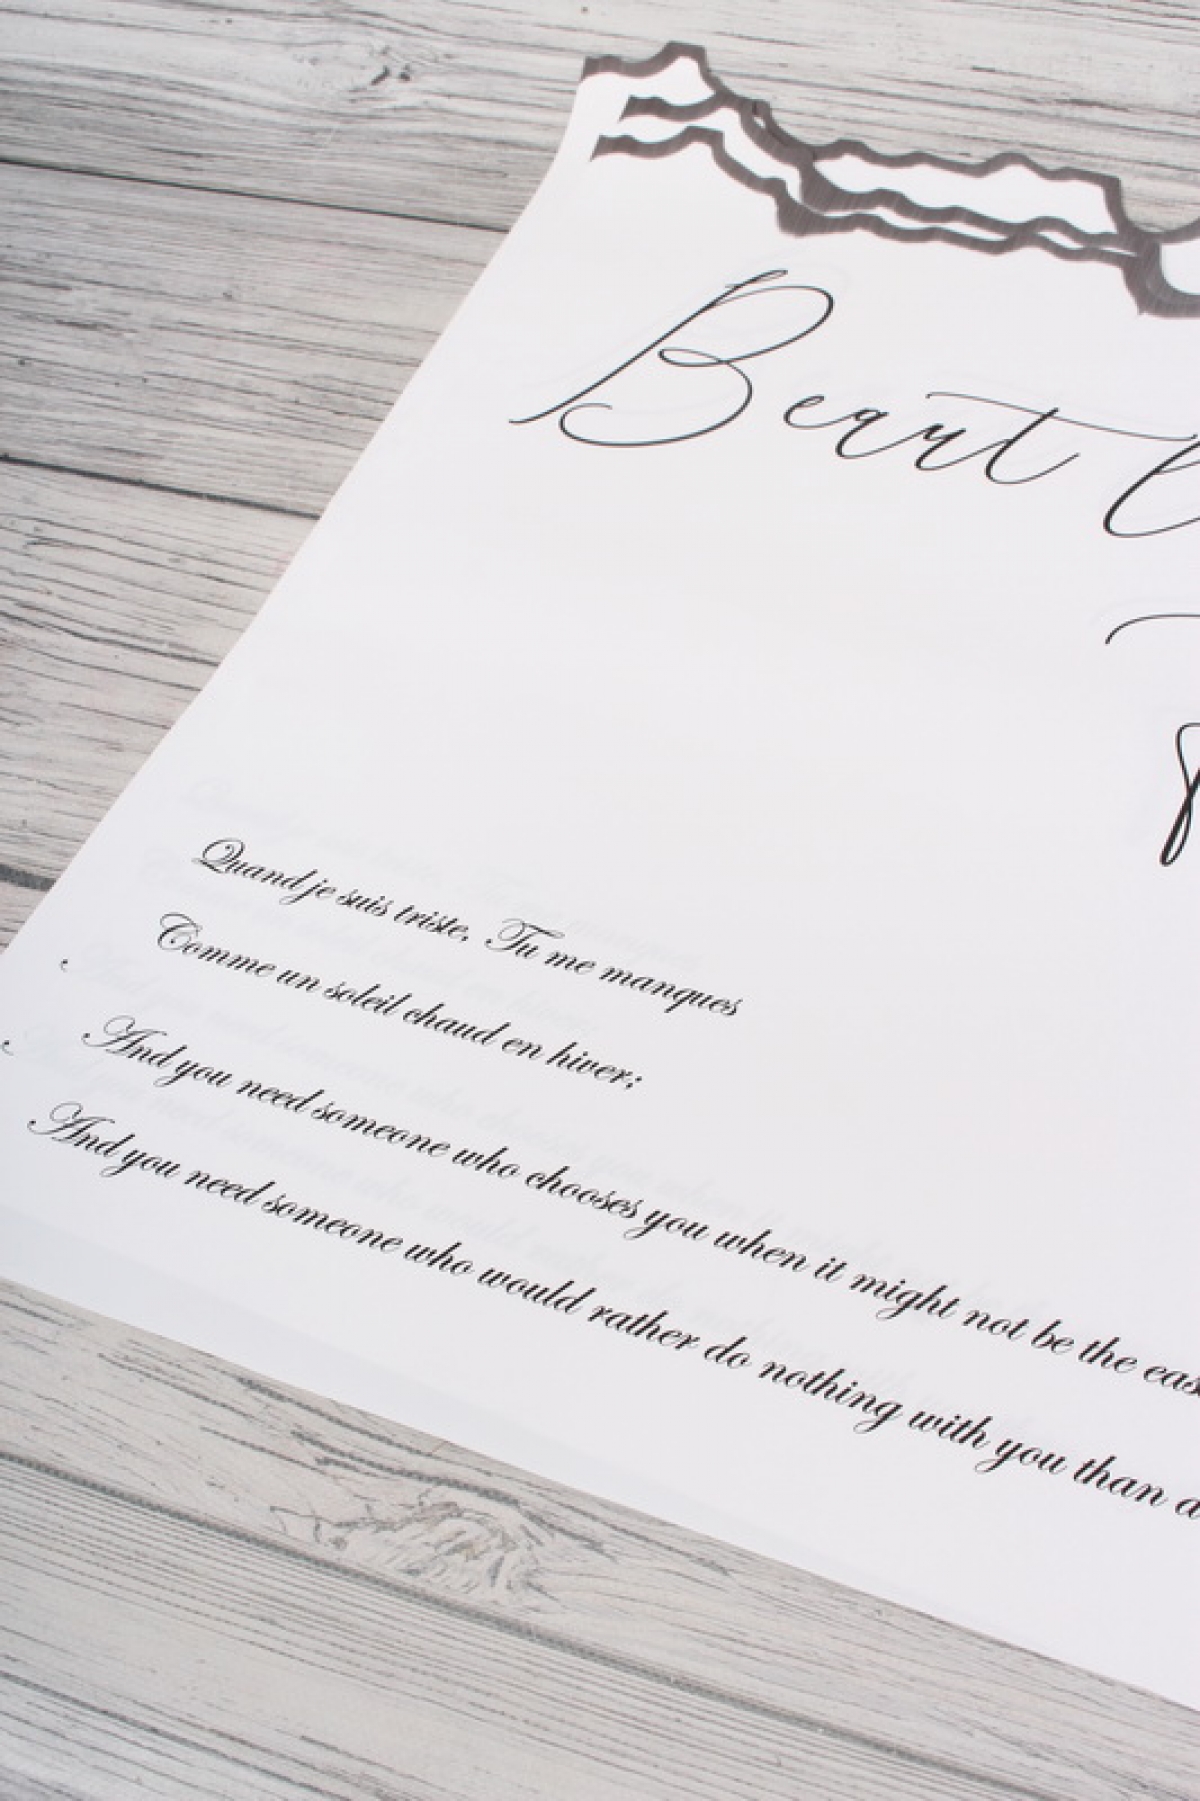 Quand je suis triste, Tu me manques
Comme un soleil chaud en hiver;
And you need someone who chooses you when it might not be the eas
And you need someone who would rather do nothing with you than a